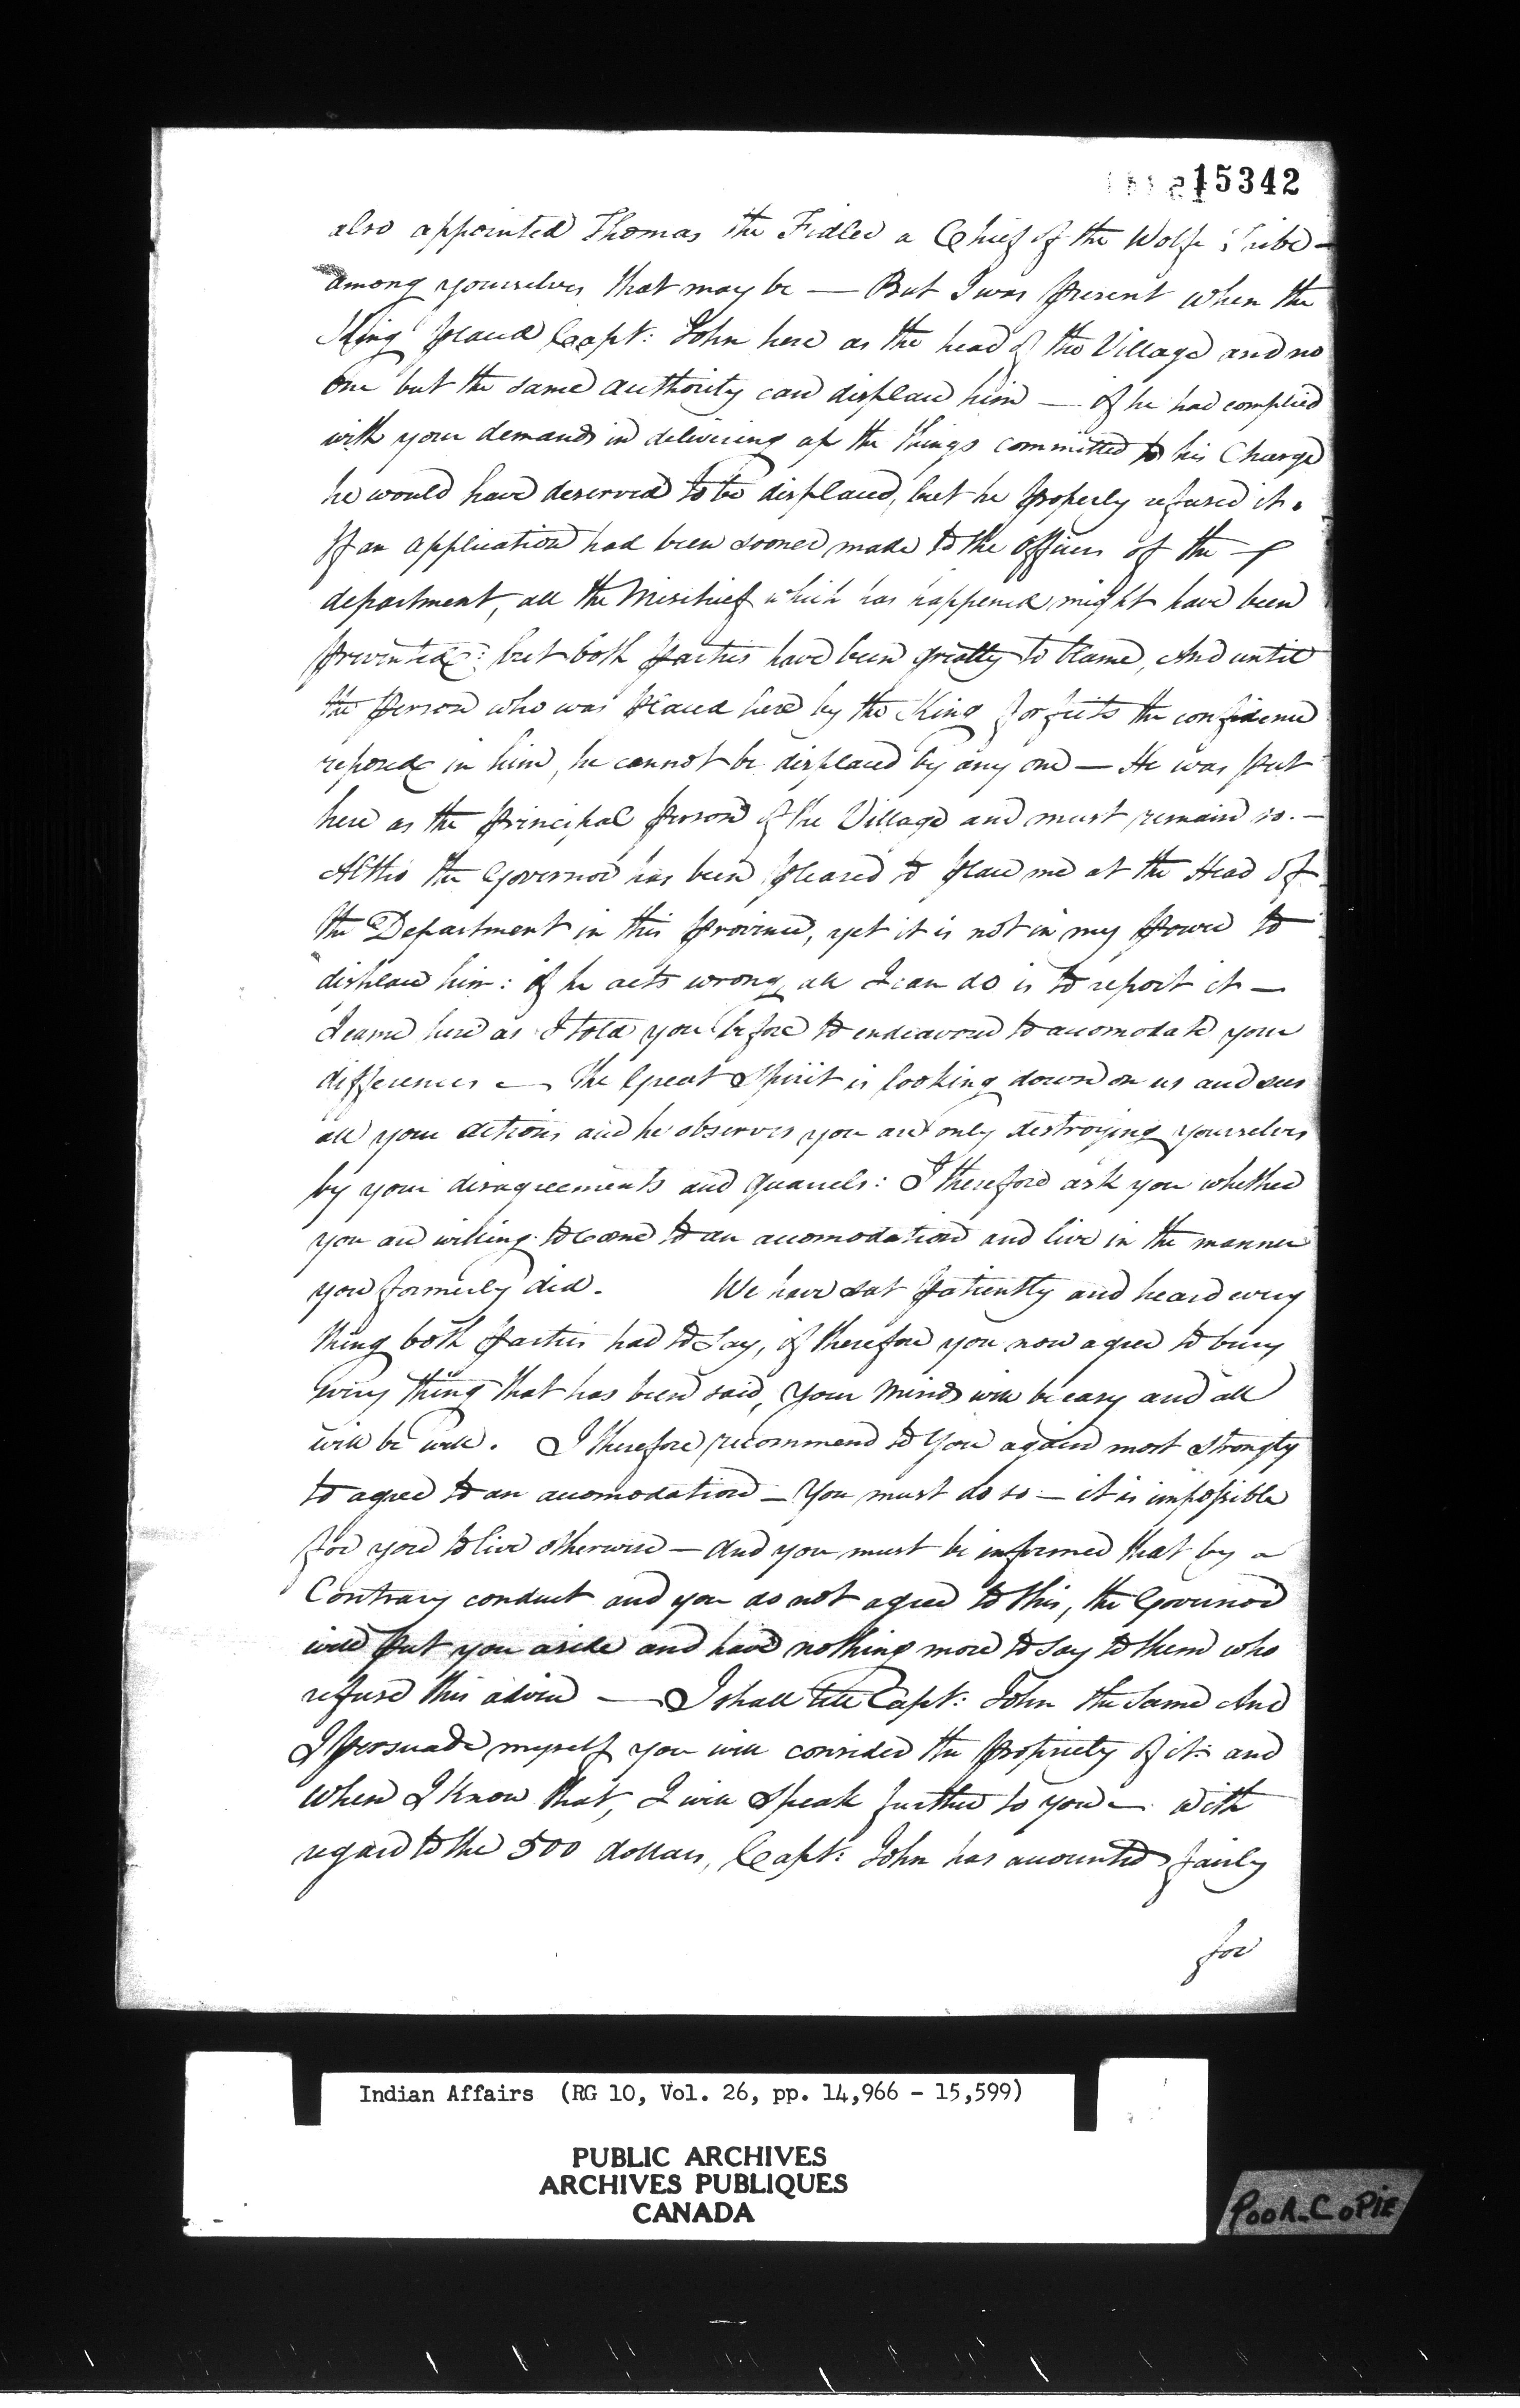 15342
also appointed Thomas the Fidler a Chief of the Wolfe Tribe —
among yourselves that may be — But I was present when the
King placed Capt: John here as the head of the Village and no
One but the same authority can displace him — if he had complied
with your demands in delivering up the things committed to his Charge
he would have deserved to be displaced, but he properly refused it.
If an application had been sooner made to the officers of the
department, all the Mischief which has happened might have been
prevented: but both parties have been greatly to blame, And until
the person who was placed here by the King forfeits the confidence
reposed in him, he cannot be displaced by any one — He was put
here as the principal person of the Village and must remain so. —
Altho the Governor has been pleased to place me at the Head of
the Department in this province, yet it is not in my power to
displace him: if he acts wrong, all I can do is to report it —
I came here as I told you before to endeavour to accomodate your
differences — The Great Spirit is looking down on us and sees
all your actions and he observes you are only destroying yourselves
by your disagreements and quarrels: I therefore ask you whether
you are willing to come to an accomodation and live in the manner
you formerly did. We have sat patiently and heard every
thing both parties had to say, if therefore you now agree to bury
every thing that has been said, your minds will be easy and all
will be well. I therefore recommend to you again most strongly
to agree to an accomodation — You must do so — it is impossible
for you to live otherwise — And you must be informed that by a
Contrary conduct and you do not agree to this, the Governor
will put you aside and have nothing more to say to them who
refuse this advice — I shall tell Capt: John the same And
I persuade myself you will consider the propriety of it and
when I know that, I will speak further to you — with
regard to the 500 dollars, Capt: John has accounted fairly
for
Indian Affairs (RG 10, Vol. 26, pp. 14,966 - 15,599)
PUBLIC ARCHIVES
ARCHIVES PUBLIQUES
CANADA
POOR COPIE